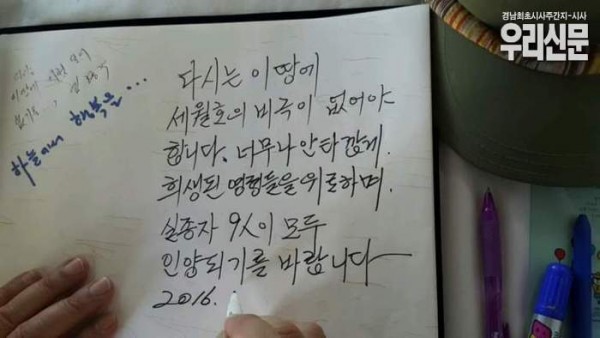 경남최초시사주간지-시사
우리신문
하늘에서 행복을...
다시는 이 땅에
세월호의 비극이 없어야
합니다. 너무나 안타깝게
희생된 영령들을 위로하며.
실종자 9人이 모두
인양되기를 바랍니다
2016.